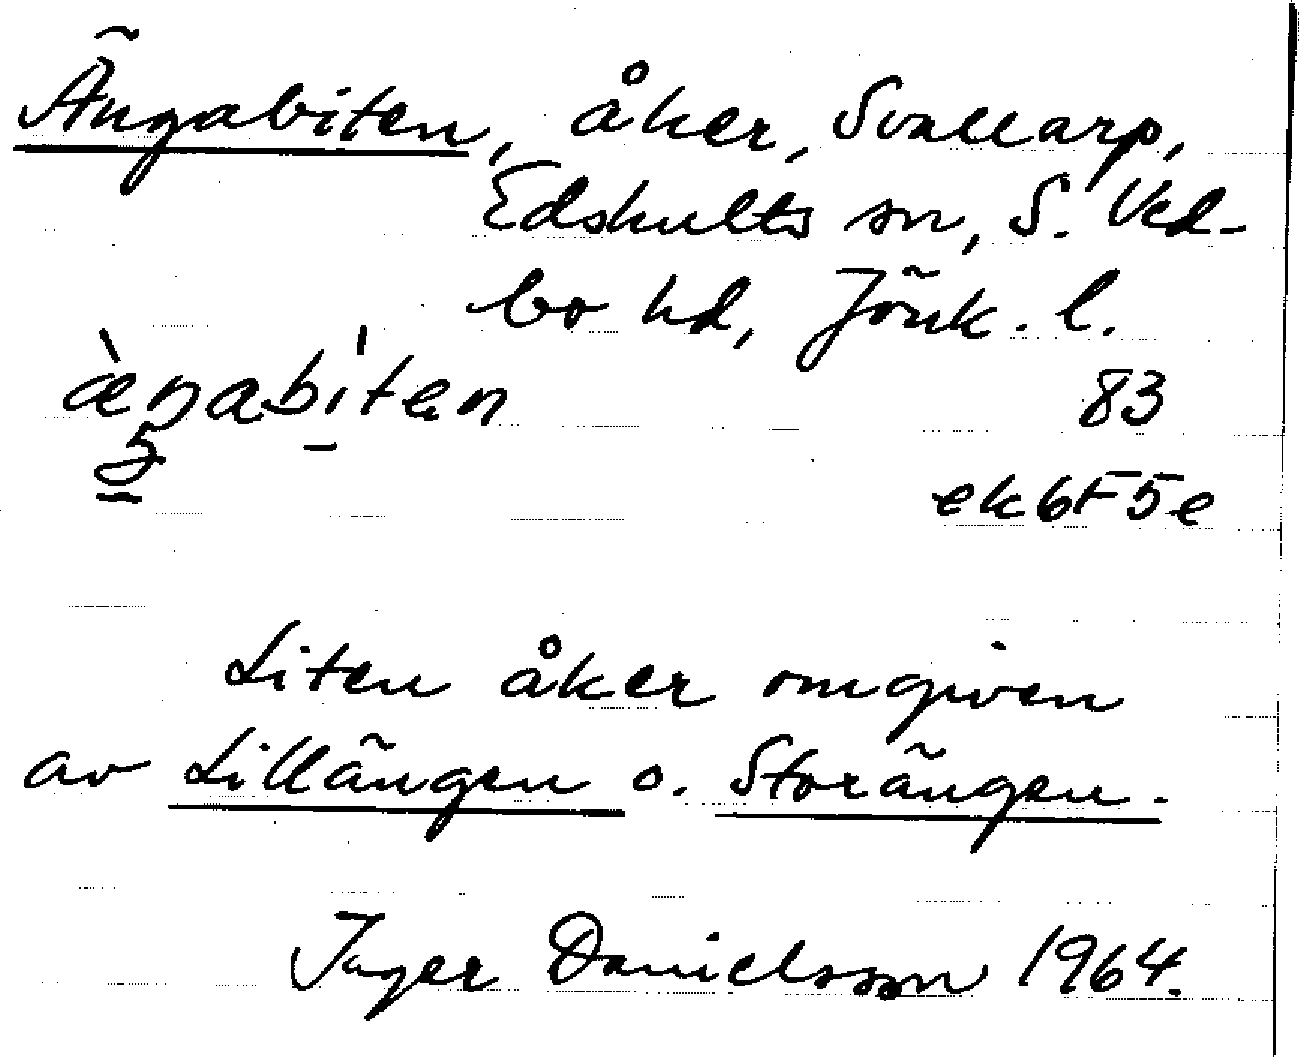 Ängabiten, åker, Svallarp,
Edshults sn, S. Ved-
bo hd, Jönk. l.
æ̀ŋabi̍ten 83
ek 6F5e
Liten åker omgiven
av Lillängen o. Storängen.
Inger Danielsson 1964.